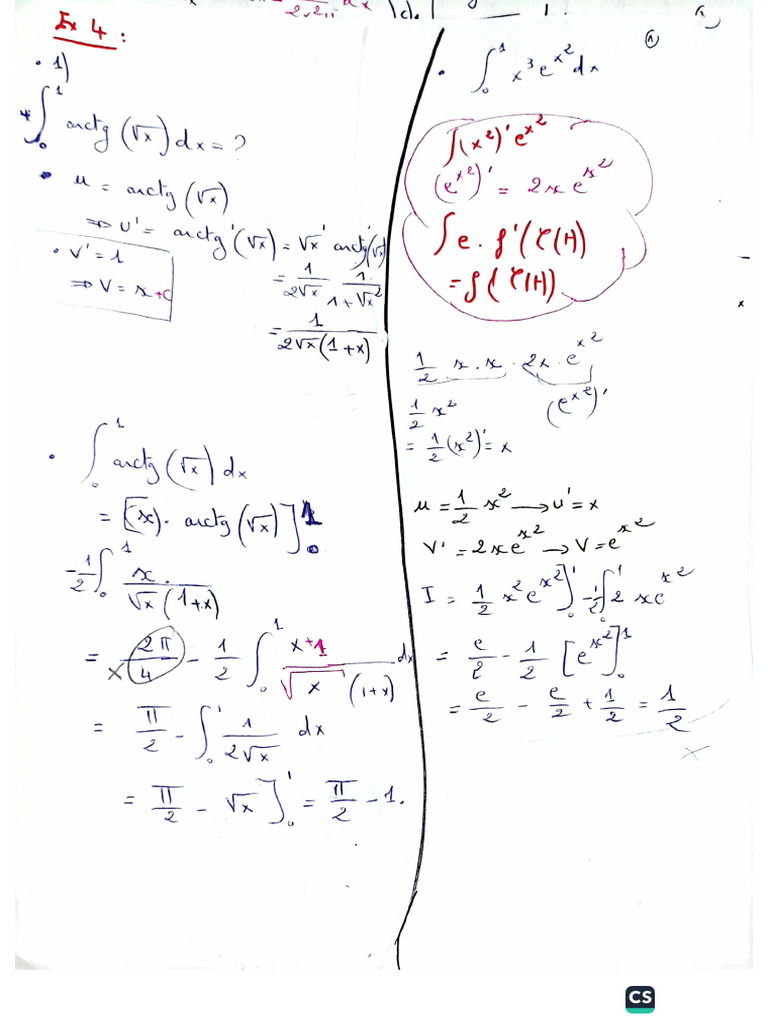 Ex 4 :
• 1)
* ∫₀¹ arctg (√x) dx = ?
• u = arctg (√x)
⇒ U' = arctg' (√x) = √x' arctg'(√x)
= 1/(2√x) 1/(1+√x²)
= 1/(2√x (1+x))
• V' = 1
⇒ V = x + c
• ∫₀¹ arctg (√x) dx
= [(x) · arctg (√x)]₀¹
- 1/2 ∫₀¹ x·/(√x (1+x))
= 2π/4 - 1/2 ∫₀¹ (x+1)/(√x (1+x)) dx
= π/2 - ∫₀¹ 1/(2√x) dx
= π/2 - √x]₀¹ = π/2 - 1.
• ∫₀¹ x³ e^(x²) dx
∫(x²)' e^(x²)
(e^(x²))' = 2x e^(x²)
1/2 · x · x · 2x · e^(x²)
1/2 x² (e^(x²))'
= 1/2 (x²)' = x
u = 1/2 x² → u' = x
V' = 2x e^(x²) → V = e^(x²)
I = 1/2 x² e^(x²)]₀¹ - 1/2 ∫₀¹ 2 x e^(x²)
= e/2 - 1/2 [e^(x²)]₀¹
= e/2 - e/2 + 1/2 = 1/2
CS